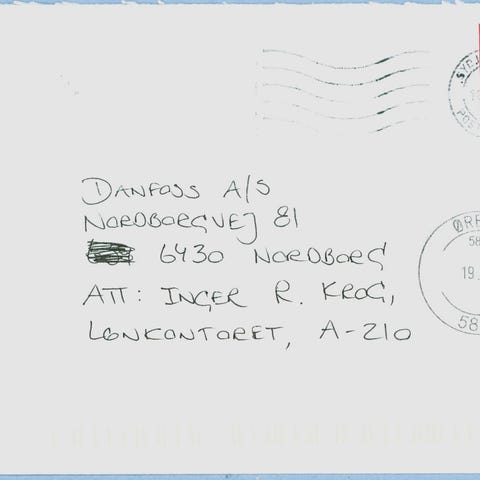 DANFOSS A/S
NORDBORGVEJ 81
6430 NORDBORG
ATT: INGER R. KROG,
LØNKONTORET, A-210
SYDJ
POST
ØRB
58
19.
58